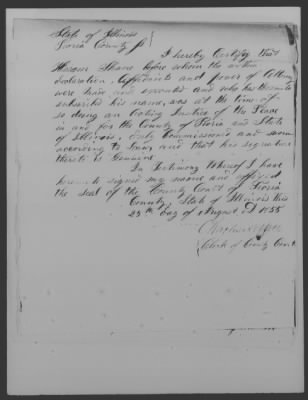 State of Illinois
Peoria County ss
I hereby Certify that
Hiram Shane before whom the within
declaration, Affidavits and power of Attorney
were made and executed and who has thereunto
subscribed his name, was at the time of
so doing an Acting Justice of the Peace
in and for the County of Peoria and State
of Illinois, duly Commissioned and sworn
according to Law, and that his signature
thereto is Genuine.
In Testimony Whereof I have
hereunto signed my name and affixed
the seal of the County Court of Peoria
County, State of Illinois this
25th Day of August A.D. 1855
Clerk of County Court